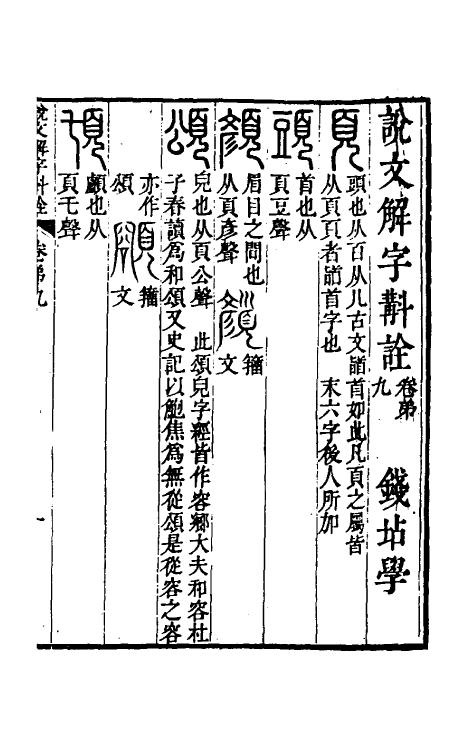 說文解字斠詮 卷弟九 錢坫學
頁 頭也从𦣻从儿古文䭫首如此凡頁之屬皆
从頁頁者䭫首字也 末六字後人所加
頭 首也从
頁豆聲
顏 眉目之間也
从頁彥聲 籒
文
頌 皃也从頁公聲 此頌皃字經皆作容鄉大夫和容杜
子春讀爲和頌又史記以鮑焦爲無從頌是從容之容
亦作
頌 額 籒
文
頇 顱也从
頁乇聲
說文解字斠詮 卷弟九 一